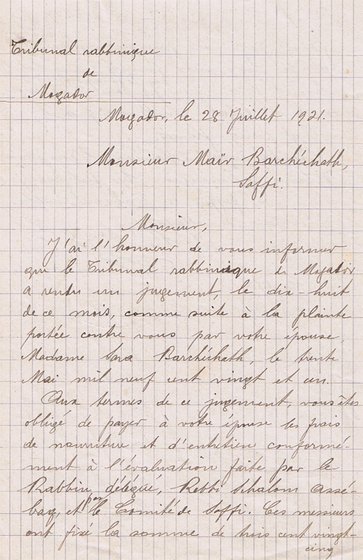 Tribunal rabbinique
de
Mogador
Mogador, le 28 Juillet 1921.
Monsieur Maïr Barchéchath,
Saffi.
Monsieur,
J'ai l'honneur de vous informer
que le Tribunal rabbinique de Mogador
a rendu un jugement, le dix-huit
de ce mois, comme suite à la plainte
portée contre vous par votre épouse,
Madame Barchéchath, le trente
Mai mil neuf cent vingt et un.
Aux termes de ce jugement, vous êtes
obligé de payer à votre épouse les frais
de nourriture et d'entretien conformé-
ment à l'évaluation faite par le
Rabbin délégué, Rebbi Chalom Assé-
bag, et par le Comité de Saffi. Ces messieurs
ont fixé la somme de trois cent vingt-
cinq